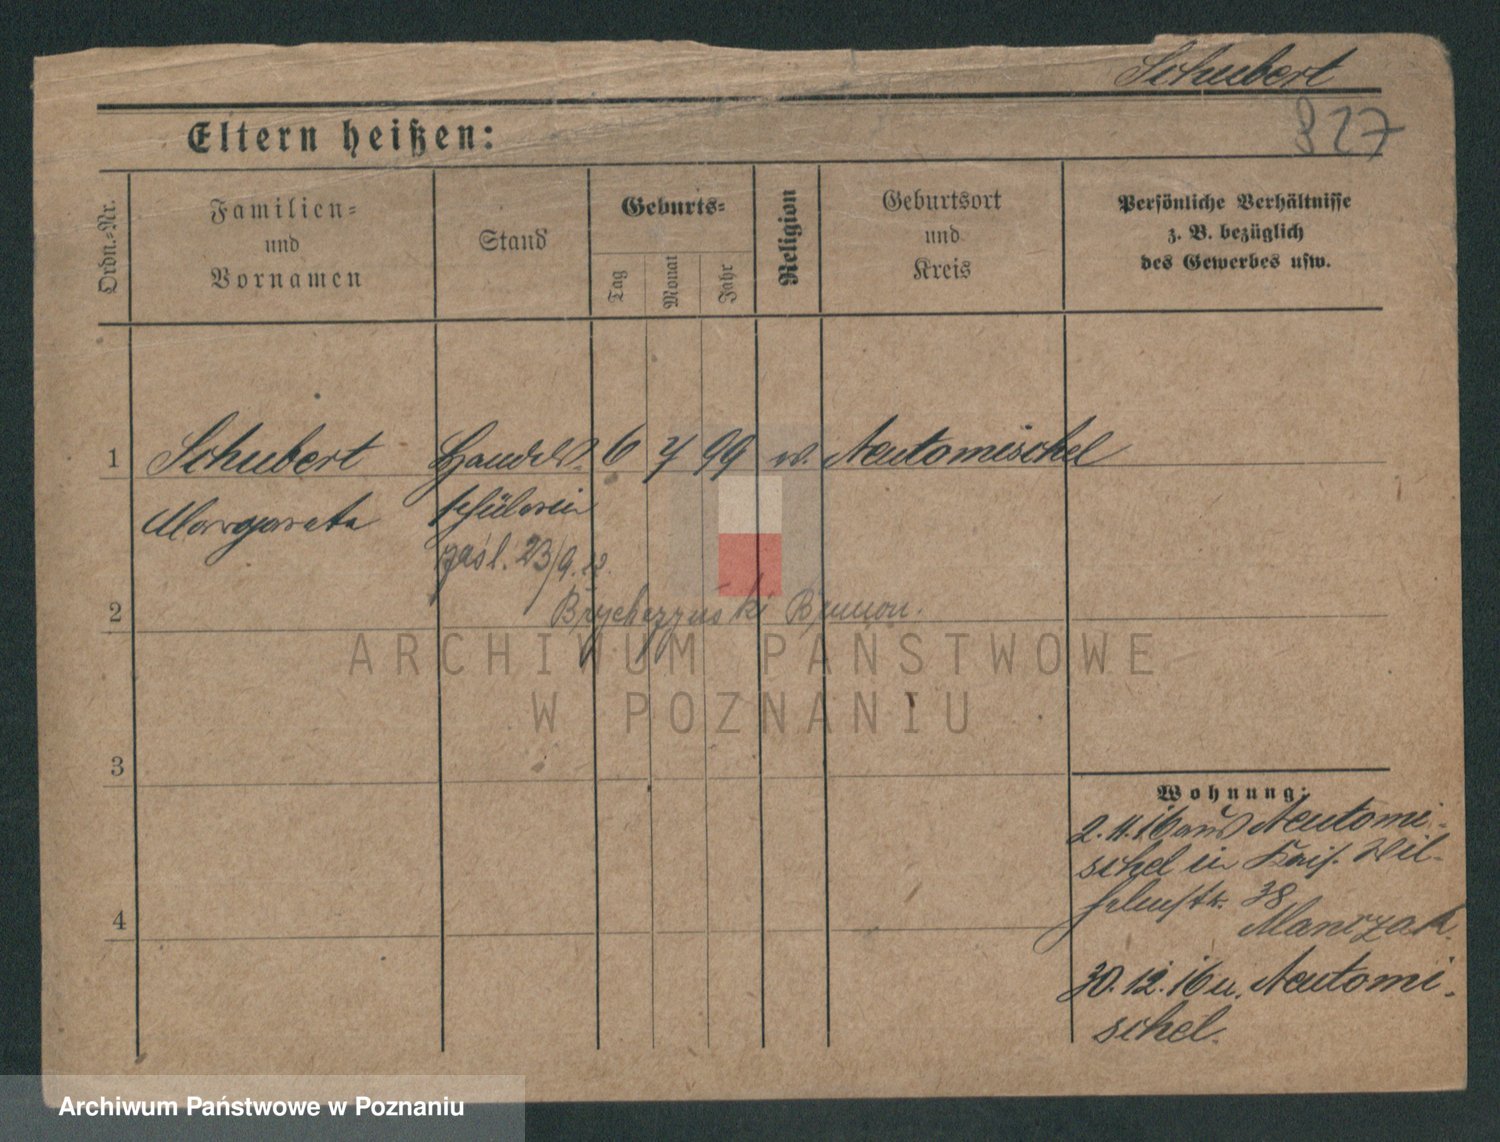 Schubert
827
Eltern heißen:
Ordn.=Nr.
Familien=
und
Vornamen
Stand
Geburts=
Tag
Monat
Jahr
Religion
Geburtsort
und
Kreis
Persönliche Verhältnisse
z. B. bezüglich
des Gewerbes usw.
1 Schubert Handels 6 7 99 ev. Neutomischel
Margareta schülerin
zaśl. 23/9. 22.
2
Brunon.
ARCHIWUM PAŃSTWOWE
W POZNANIU
3
Wohnung:
2.11.16 aus Neutomi-
schel in Kais. Wil-
helmstr. 38
4
Manczak.
30.12.16 n. Neutomi-
schel.
Archiwum Państwowe w Poznaniu